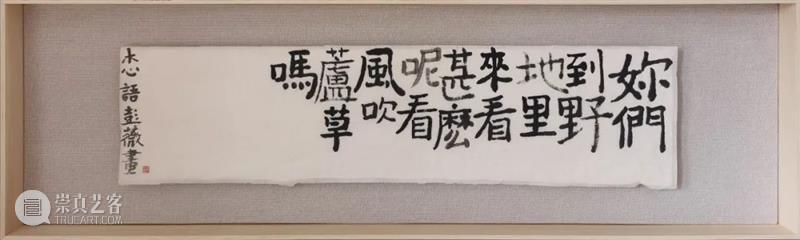 妳們
到野
地里
來看
甚麼
呢看
風吹
蘆草
嗎
木心語彭薇
崇真艺客
TRUEART.COM